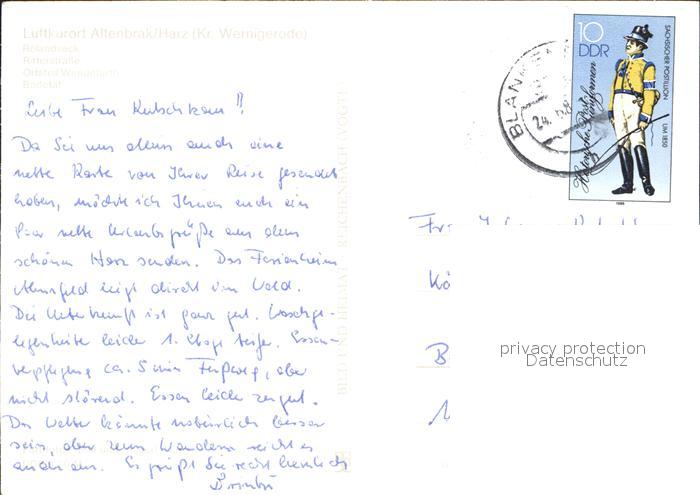 Luftkurort Altenbrak/Harz (Kr. Wernigerode)
Rolandseck
Ritterstraße
Ortsteil Wendefurth
Bodetal
10
DDR
SÄCHSISCHER POSTILLION UM 1850
Historische Postuniformen
1986
BLANKEN
24.
BILD UND HEIMAT REICHENBACH (VOGTL)
Liebe Frau
Da Sie uns allein auch eine
nette Karte von Ihrer Reise gesendet
haben, möchte ich Ihnen auch ein
Paar nette Urlaubsgrüße aus dem
schönen Harz senden. Das Ferienheim
liegt direkt am Wald.
Die Unterkunft ist ganz gut. Waschge-
legenheite leider 1. Etage tiefer. Essen-
verpflegung ca. 5 min Fußweg, aber
nicht störend. Essen leider zu gut.
Das Wetter könnte natürlich besser
sein, aber zum Wandern reicht es
auch aus. Es grüßt Sie recht herzlich
Fr
Kö
B
privacy protection
Datenschutz